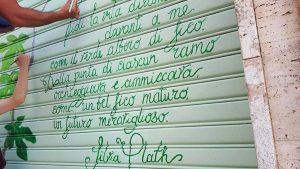 vidi la vita diramarsi
davanti a me
come il verde albero di fico.
Dalla punta di ciascun ramo
occhieggiava e ammiccava
come un bel fico maturo,
un futuro meraviglioso.
Silvia Plath